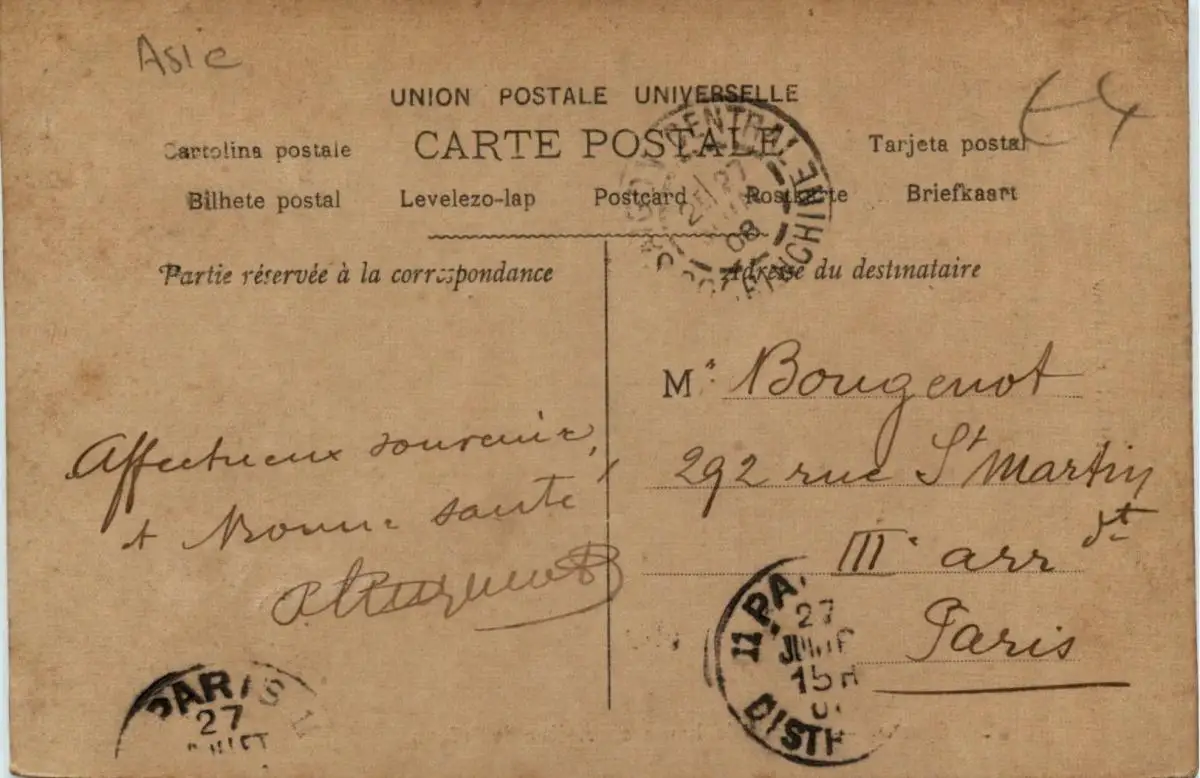 Asie
UNION POSTALE UNIVERSELLE
CARTE POSTALE
Cartolina postale
Tarjeta postal
Bilhete postal Levelezo-lap Postcard Postkarte Briefkaart
CENTRAL
27
08
Partie réservée à la correspondance
Adresse du destinataire
Mr Bougenot
292 rue St Martin
IIIe arrdt
Paris
Affectueux souvenir,
et Bonne santé
11 PA
27
15
DISTR
PARIS
27